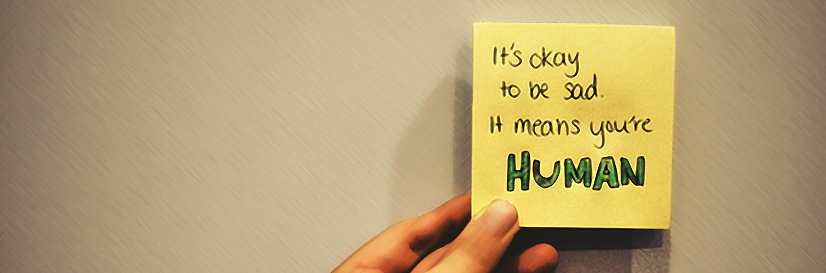 It's okay
to be sad.
It means you're
HUMAN